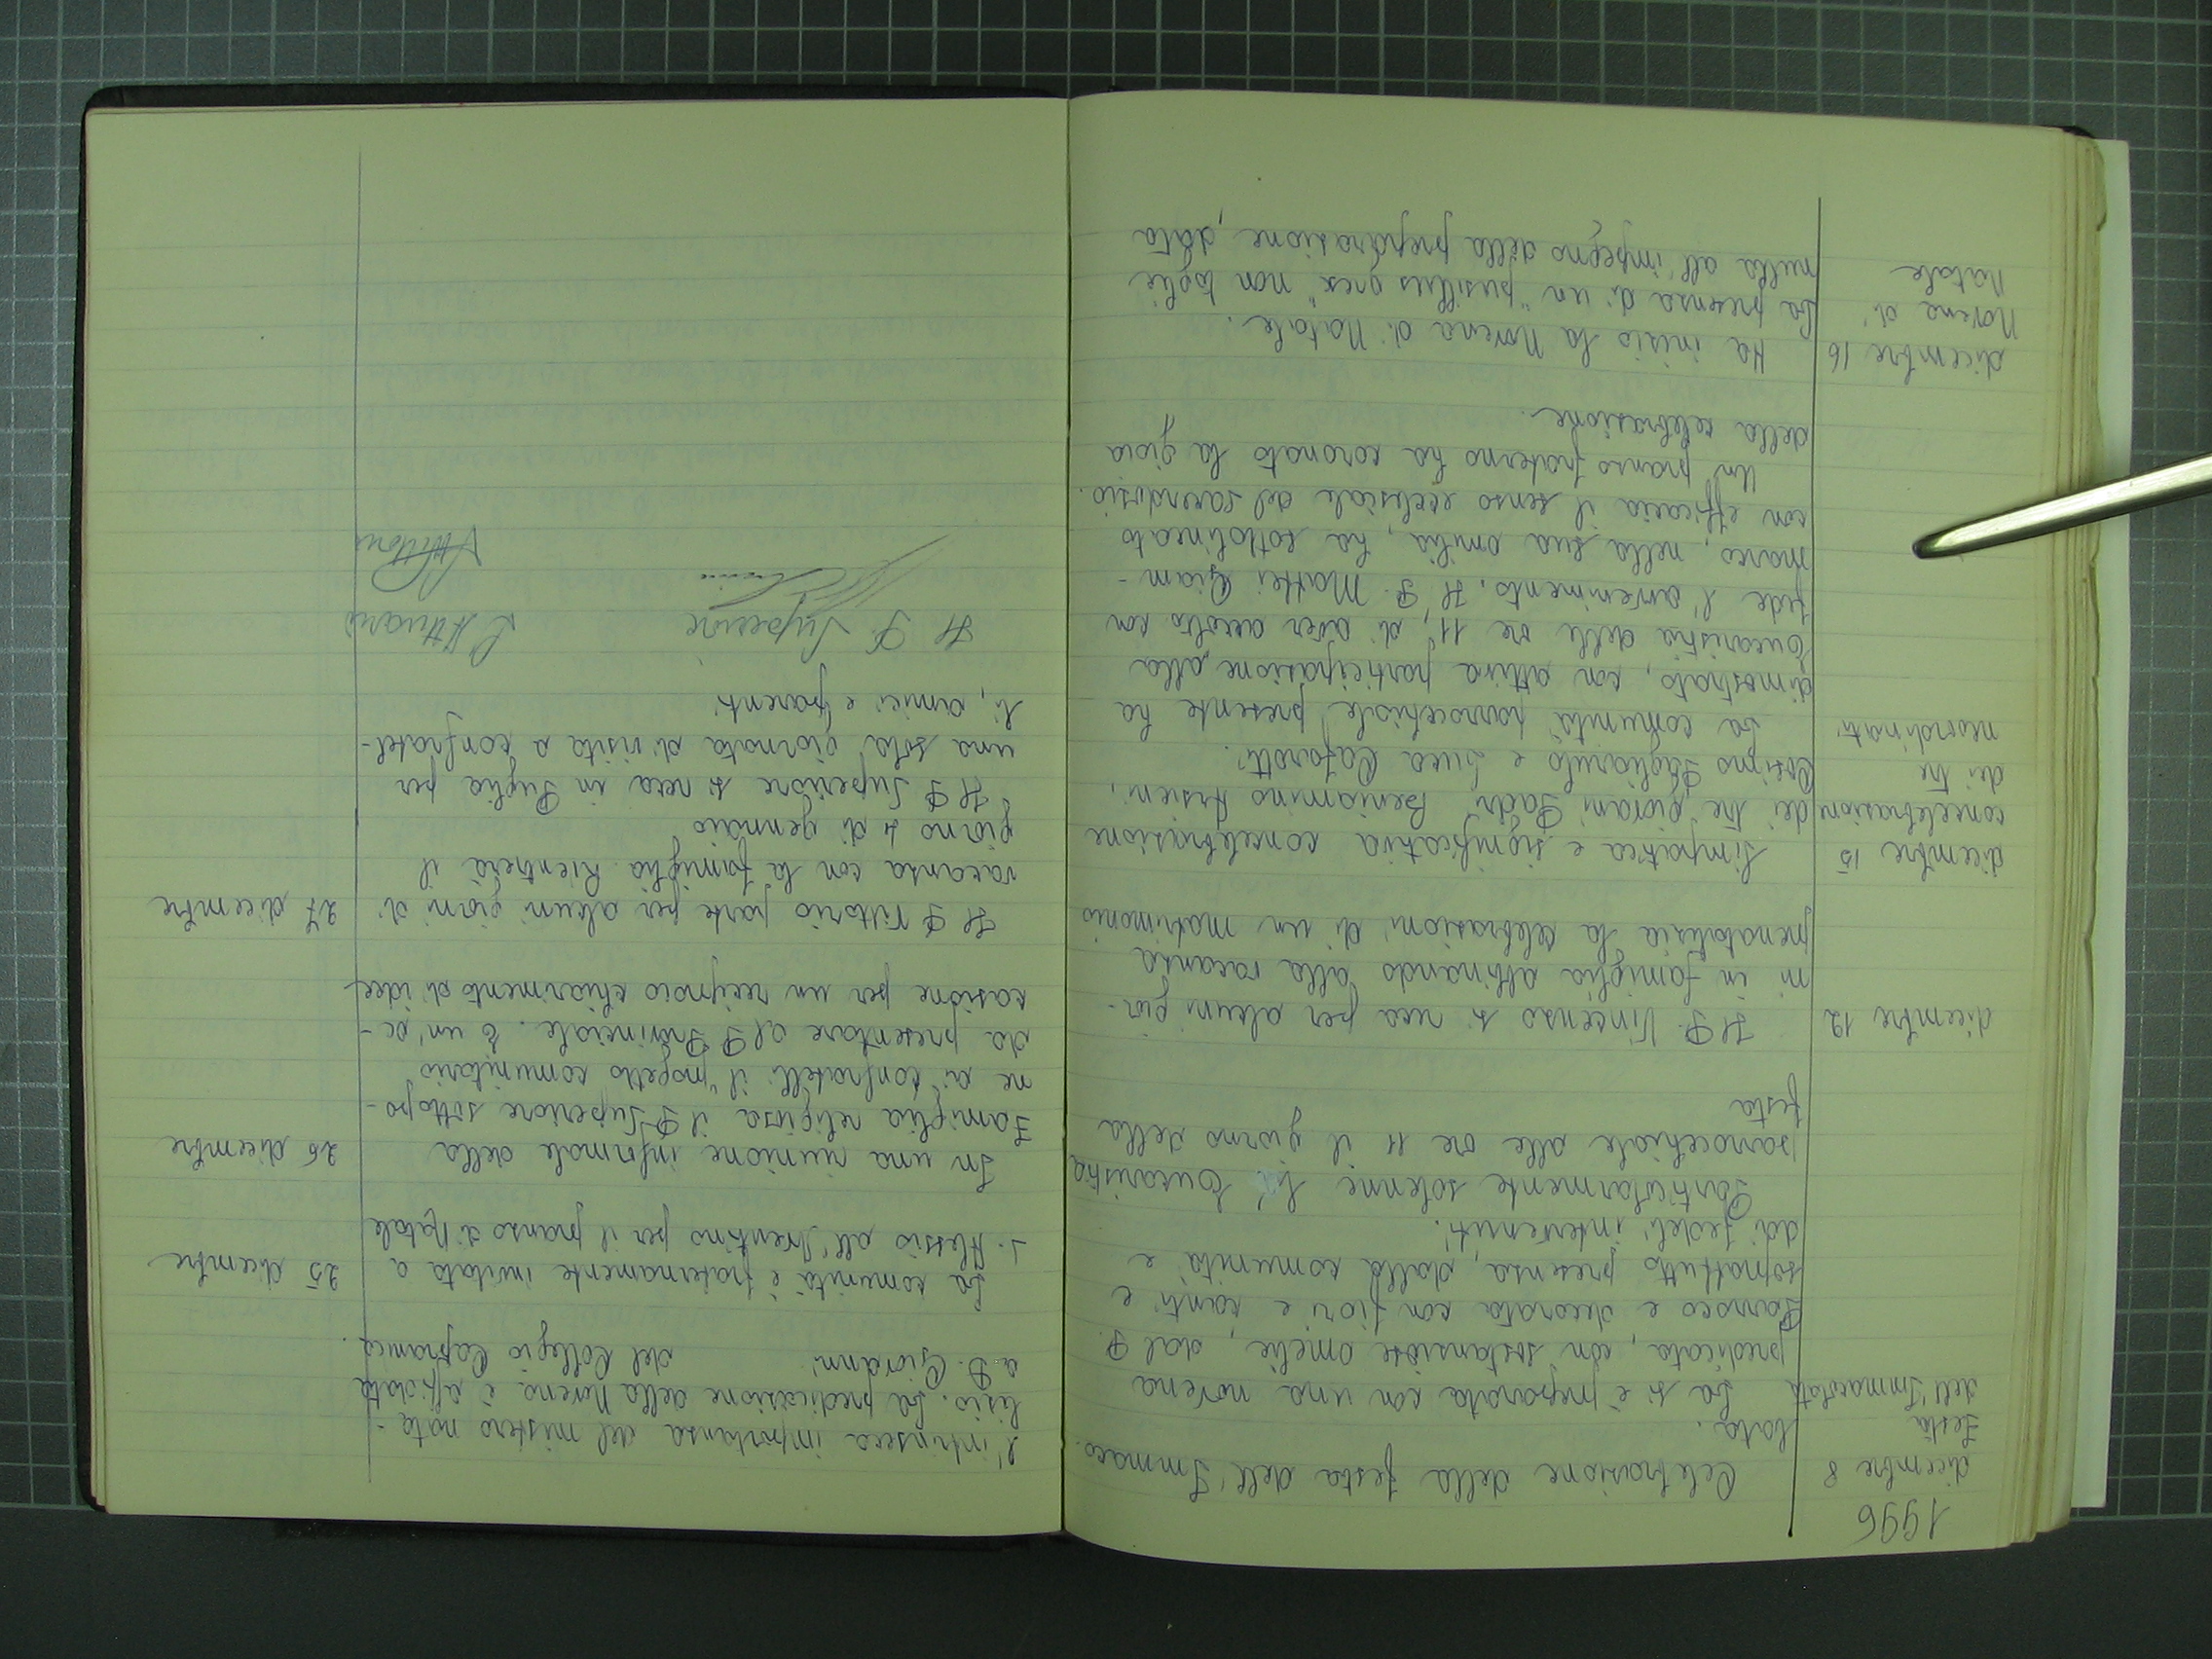 1996
dicembre 8
Festa
dell'Immacolata
Celebrazione della festa dell'Immaco-
lata.
La si è preparata con una novena
predicata, con sostanziose omelie, dal P.
Parroco e decorata con fiori e canti e
soprattutto presenza, dalla comunità e
dai fedeli intervenuti.
Particolarmente solenne la Eucaristia
parrocchiale alle ore 11 il giorno della
festa
dicembre 12
Il P. Vincenzo si reca per alcuni gior-
ni in famiglia abbinando alla vacanza
prenatalizia la celebrazione di un matrimonio
dicembre 15
concelebrazione
dei tre
neordinati
Simpatica e significativa concelebrazione
dei tre giovani Padri Beniamino Arsieni,
Cosimo Pagliarulo e Luca Cafarotti.
La comunità parrocchiale presente ha
dimostrato, con attiva partecipazione alla
Eucaristia delle ore 11, di aver accolto con
fede l'avvenimento. Il P. Mattei Giam-
marco, nella sua omilia, ha sottolineato
con efficacia il senso ecclesiale del sacerdozio.
Un pranzo fraterno ha coronato la gioia
della celebrazione.
dicembre 16
Novena di
Natale
Ha inizio la Novena di Natale.
La presenza di un "pusillus grex" non toglie
nulla all'impegno della preparazione, data
l'intrinseca importanza del mistero nata-
lizio. La predicazione della Novena è affidata
a D. Giovanni del Collegio Capranica.
25 dicembre
La comunità è fraternamente invitata a
S. Alessio all'Aventino per il pranzo di Natale
26 dicembre
In una riunione informale della
Famiglia religiosa il P Superiore sottopo-
ne ai confratelli il "progetto comunitario"
da presentare al P Provinciale. È un'oc-
casione per un reciproco chiarimento di idee
27 dicembre
Il P Vittorio parte per alcuni giorni di
vacanza con la famiglia. Rientrerà il
giorno 4 di gennaio
Il P Superiore si reca in Puglia per
una sola giornata di visita a confratel-
li, amici e parenti
Il P. Superiore
L'Attuario